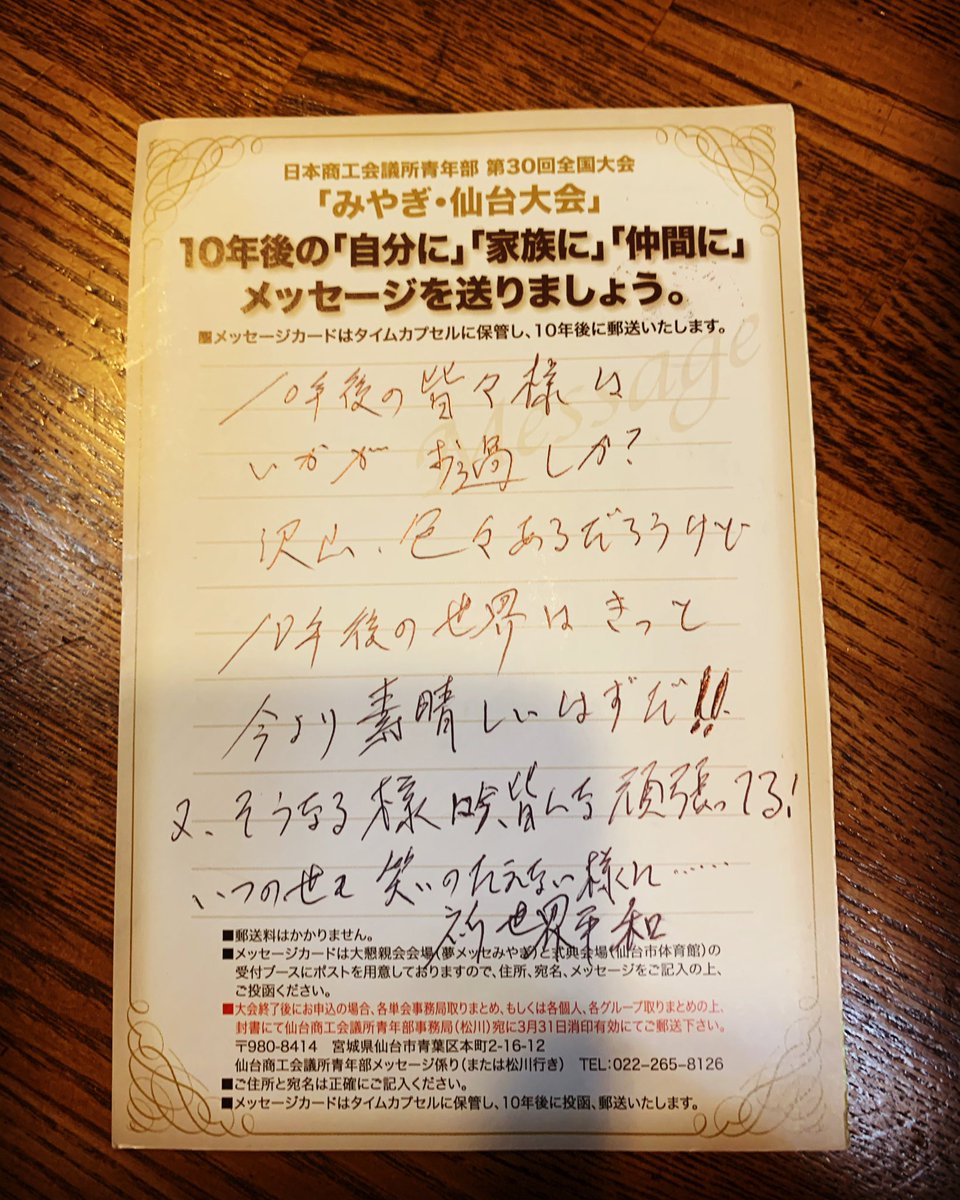 日本商工会議所青年部 第30回全国大会
「みやぎ・仙台大会」
10年後の「自分に」「家族に」「仲間に」
メッセージを送りましょう。
メッセージカードはタイムカプセルに保管し、10年後に郵送いたします。
Message
10年後の皆々様は
いかがお過しか?
沢山、色々あるだろうけど
10年後の世界はきっと
今より素晴しいはずだ!!
又、そうなる様 皆んな頑張ってる!
いつのせも 笑いのたえない様に……
祈 世界平和
■郵送料はかかりません。
■メッセージカードは大懇親会会場(夢メッセみやぎ)と式典会場(仙台市体育館)の
受付ブースにポストを用意しておりますので、住所、宛名、メッセージをご記入の上、
ご投函ください。
■大会終了後にお申込の場合、各単会事務局取りまとめ、もしくは各個人、各グループ取りまとめの上、
封書にて仙台商工会議所青年部事務局(松川)宛に3月31日消印有効にてご郵送下さい。
〒980-8414 宮城県仙台市青葉区本町2-16-12
仙台商工会議所青年部メッセージ係り(または松川行き) TEL:022-265-8126
■ご住所と宛名は正確にご記入ください。
■メッセージカードはタイムカプセルに保管し、10年後に投函、郵送いたします。